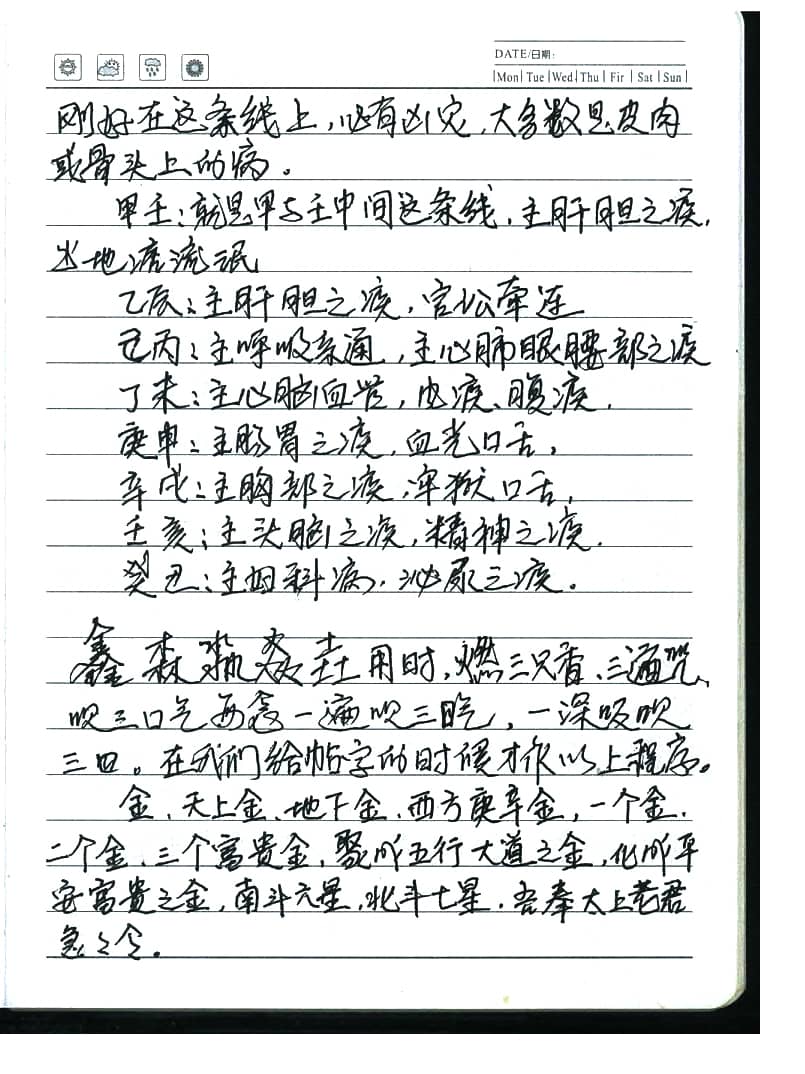 DATE/日期:
Mon Tue Wed Thu Fir Sat Sun
刚好在这条线上,必有凶灾,大多数是皮肉
或骨头上的病。
甲壬:就是甲与壬中间这条线,主肝胆之疾,
出地流氓
乙辰:主肝胆之疾,官讼牵连
巳丙:主呼吸系通,主心肺眼腰部之疾
丁未:主心脑血管,皮疾、腹疾,
庚申:主肠胃之疾,血光口舌,
辛戌:主胸部之疾,牢狱口舌,
壬亥:主头脑之疾,精神之疾.
癸丑:主妇科病,泌尿之疾。
鑫森淼焱垚用时,燃三只香、三遍咒、
吹三口气再念一遍吹三口气,一深吸吹
三口。在我们给帖字的时候才作以上程序。
金、天上金、地下金、西方庚辛金,一个金.
二个金、三个富贵金,聚成五行大道之金,化成平
安富贵之金,南斗六星,北斗七星,吾奉太上老君
急々令。